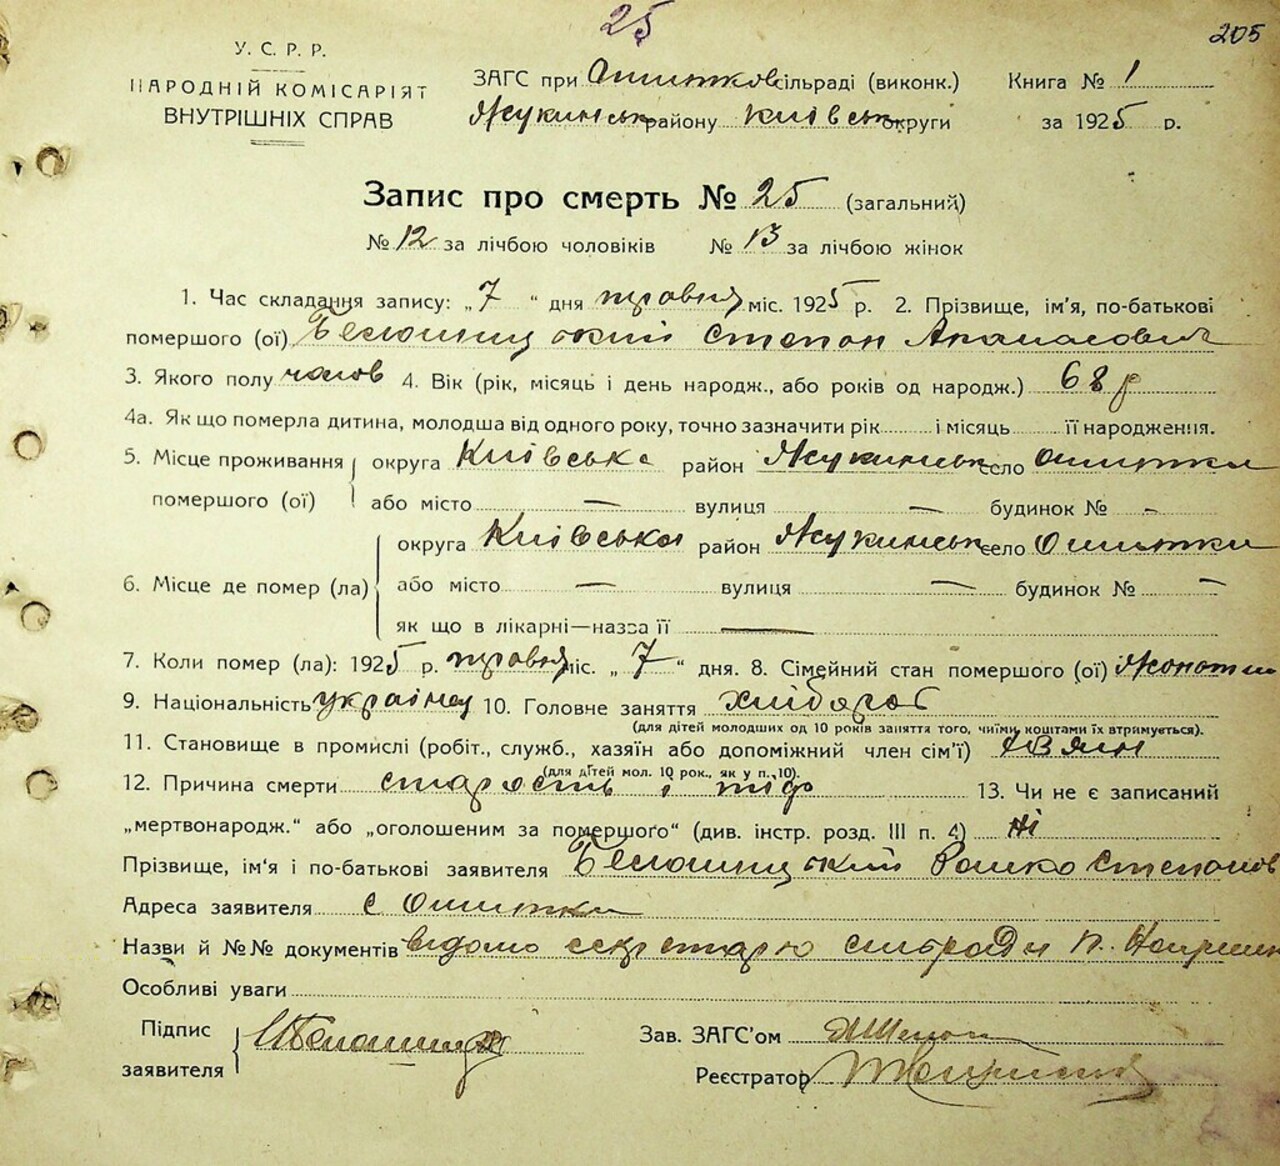 25
205
У. С. Р. Р.
НАРОДНІЙ КОМІСАРІЯТ
ВНУТРІШНІХ СПРАВ
ЗАГС при Ошитков сільраді (виконк.)
району Київськ округи
Книга № 1
за 1925 р.
Запис про смерть № 25 (загальний)
№ 12 за лічбою чоловіків № 13 за лічбою жінок
1. Час складання запису: „7“ дня травня міс. 1925 р. 2. Прізвище, ім'я, по-батькові
помершого (ої) Белошицький Степан Апанасович
3. Якого полу чолов 4. Вік (рік, місяць і день народж., або років од народж.) 68 р
4а. Як що померла дитина, молодша від одного року, точно зазначити рік і місяць її народження.
5. Місце проживання помершого (ої) округа Київська район село Ошитки
або місто — вулиця — будинок № -
6. Місце де помер (ла) округа Київська район село Ошитки
або місто — вулиця — будинок № —
як що в лікарні—назва її —
7. Коли помер (ла): 1925 р. травня міс. „7“ дня. 8. Сімейний стан помершого (ої)
9. Національність українец 10. Головне заняття хлібороб
(для дітей молодших од 10 років заняття того, чиїми коштами їх втримується).
11. Становище в промислі (робіт., служб., хазяїн або допоміжний член сім'ї)
(для дітей мол. 10 рок., як у п. 10).
12. Причина смерти старость і тіф 13. Чи не є записаний
„мертвонародж.“ або „оголошеним за помершого“ (див. інстр. розд. III п. 4) Ні
Прізвище, ім'я і по-батькові заявителя Белошицький Степанов
Адреса заявителя с Ошитки
Назви й №№ документів відомо секретарю сільради
Особливі уваги
Підпис заявителя
Зав. ЗАГС'ом
Реєстратор